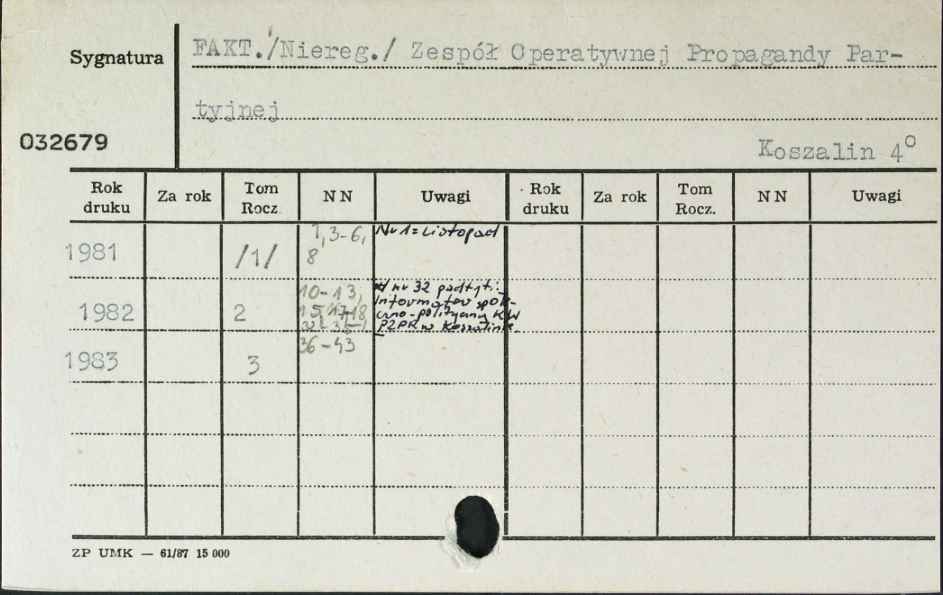 Sygnatura FAKT./Niereg./ Zespół Operatywnej Propagandy Par-
tyjnej
032679
Koszalin 4°
Rok druku Za rok Tom Rocz. N N Uwagi Rok druku Za rok Tom Rocz. N N Uwagi
1981 /1/ 1, 3-6, 8 Nr 1 = Listopad
1982 2 10-13, 15, 17-18 32-35 nr 32 podtyt:
Informator społe-
czno-polityczny KW
PZPR w Koszalinie
1983 3 36-43
ZP UMK — 61/87 15 000